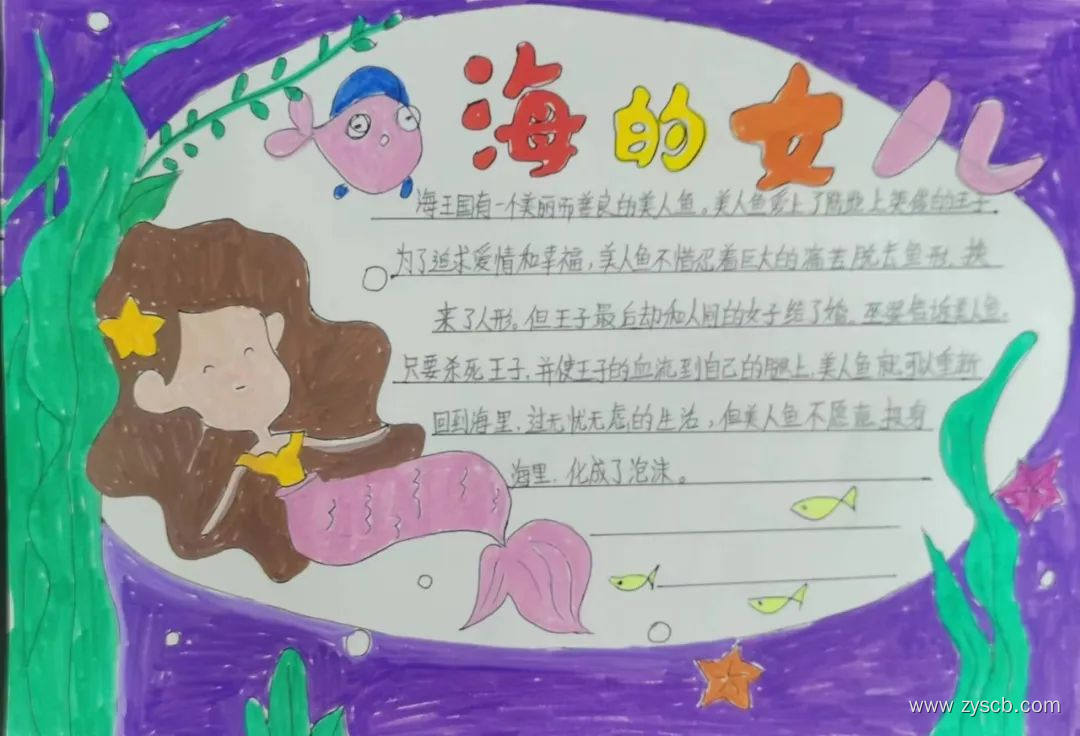 海的女儿
海王国有一个美丽而善良的美人鱼。美人鱼爱上了陆地上英俊的王子.
为了追求爱情和幸福，美人鱼不惜忍着巨大的痛苦脱去鱼形、换
来了人形。但王子最后却和人间的女子结了婚。巫婆告诉美人鱼.
只要杀死王子.并使王子的血流到自己的腿上.美人鱼就可以重新
回到海里.过无忧无虑的生活，但美人鱼不愿意.投身
海里.化成了泡沫。
www.zyscb.com